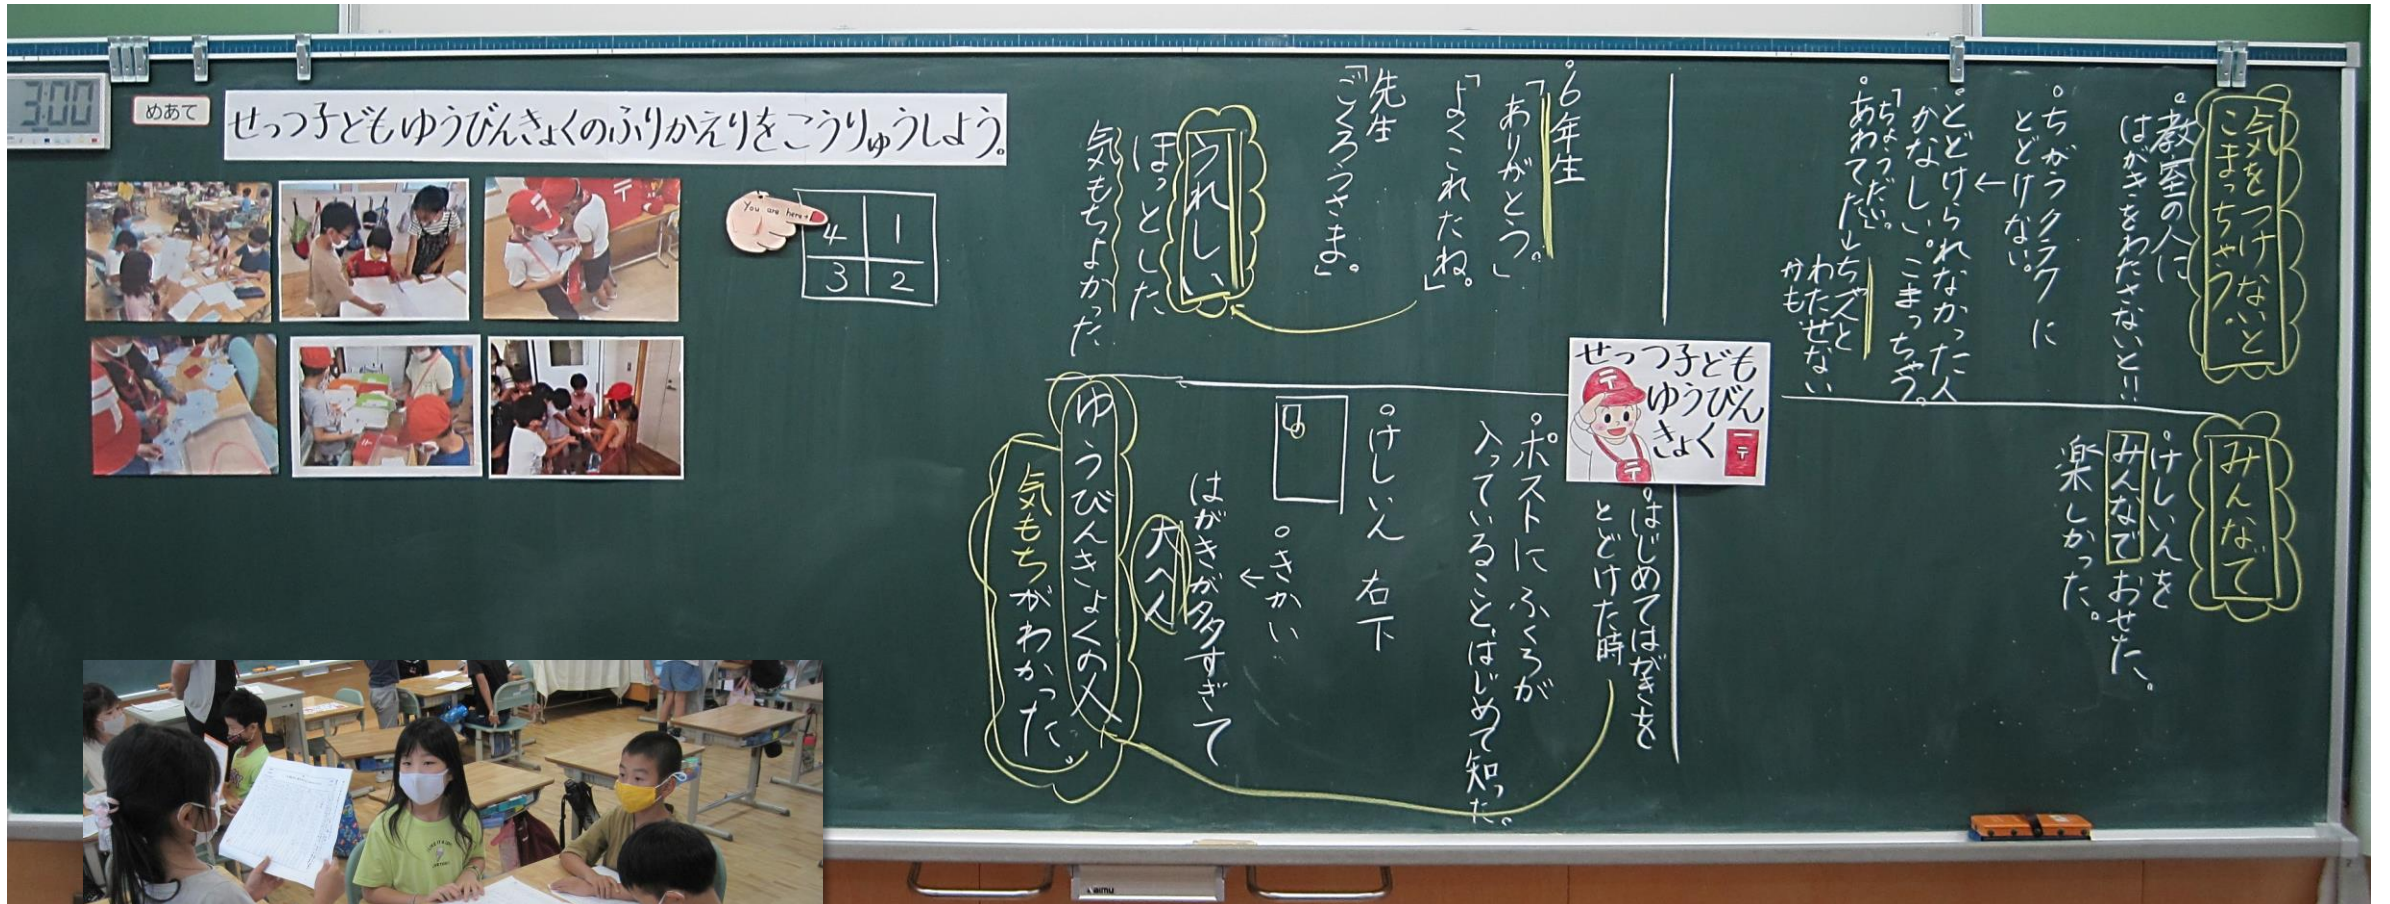 3:00
めあて
せっつ子どもゆうびんきょくのふりかえりをこうりゅうしよう。
You are here
4 1
3 2
気をつけないと
こまっちゃう。
。教室の人に
はがきをわたさないと!!
。ちがうクラクに
とどけない。
←
。とどけられなかった人
かなしい。こまっちゃう。
「ちょうだい。」
。あわてた→ちゃんと
わたせない
かも
。6年生
「ありがとう。」
「よくこれたね。」
先生
「ごくろうさま。」
うれしい
ほっとした
気もちよかった
せっつ子ども
ゆうびん
きょく
〒
〒
〒
みんなで
。けしいんを
みんなでおせた、
楽しかった。
。はじめてはがきを
とどけた時
。ポストにふくろが
入っていること、はじめて知った。
。けしいん 右下
。きかい
←
はがきが多すぎて
大へん
ゆうびんきょくの人
気もちがわかった。